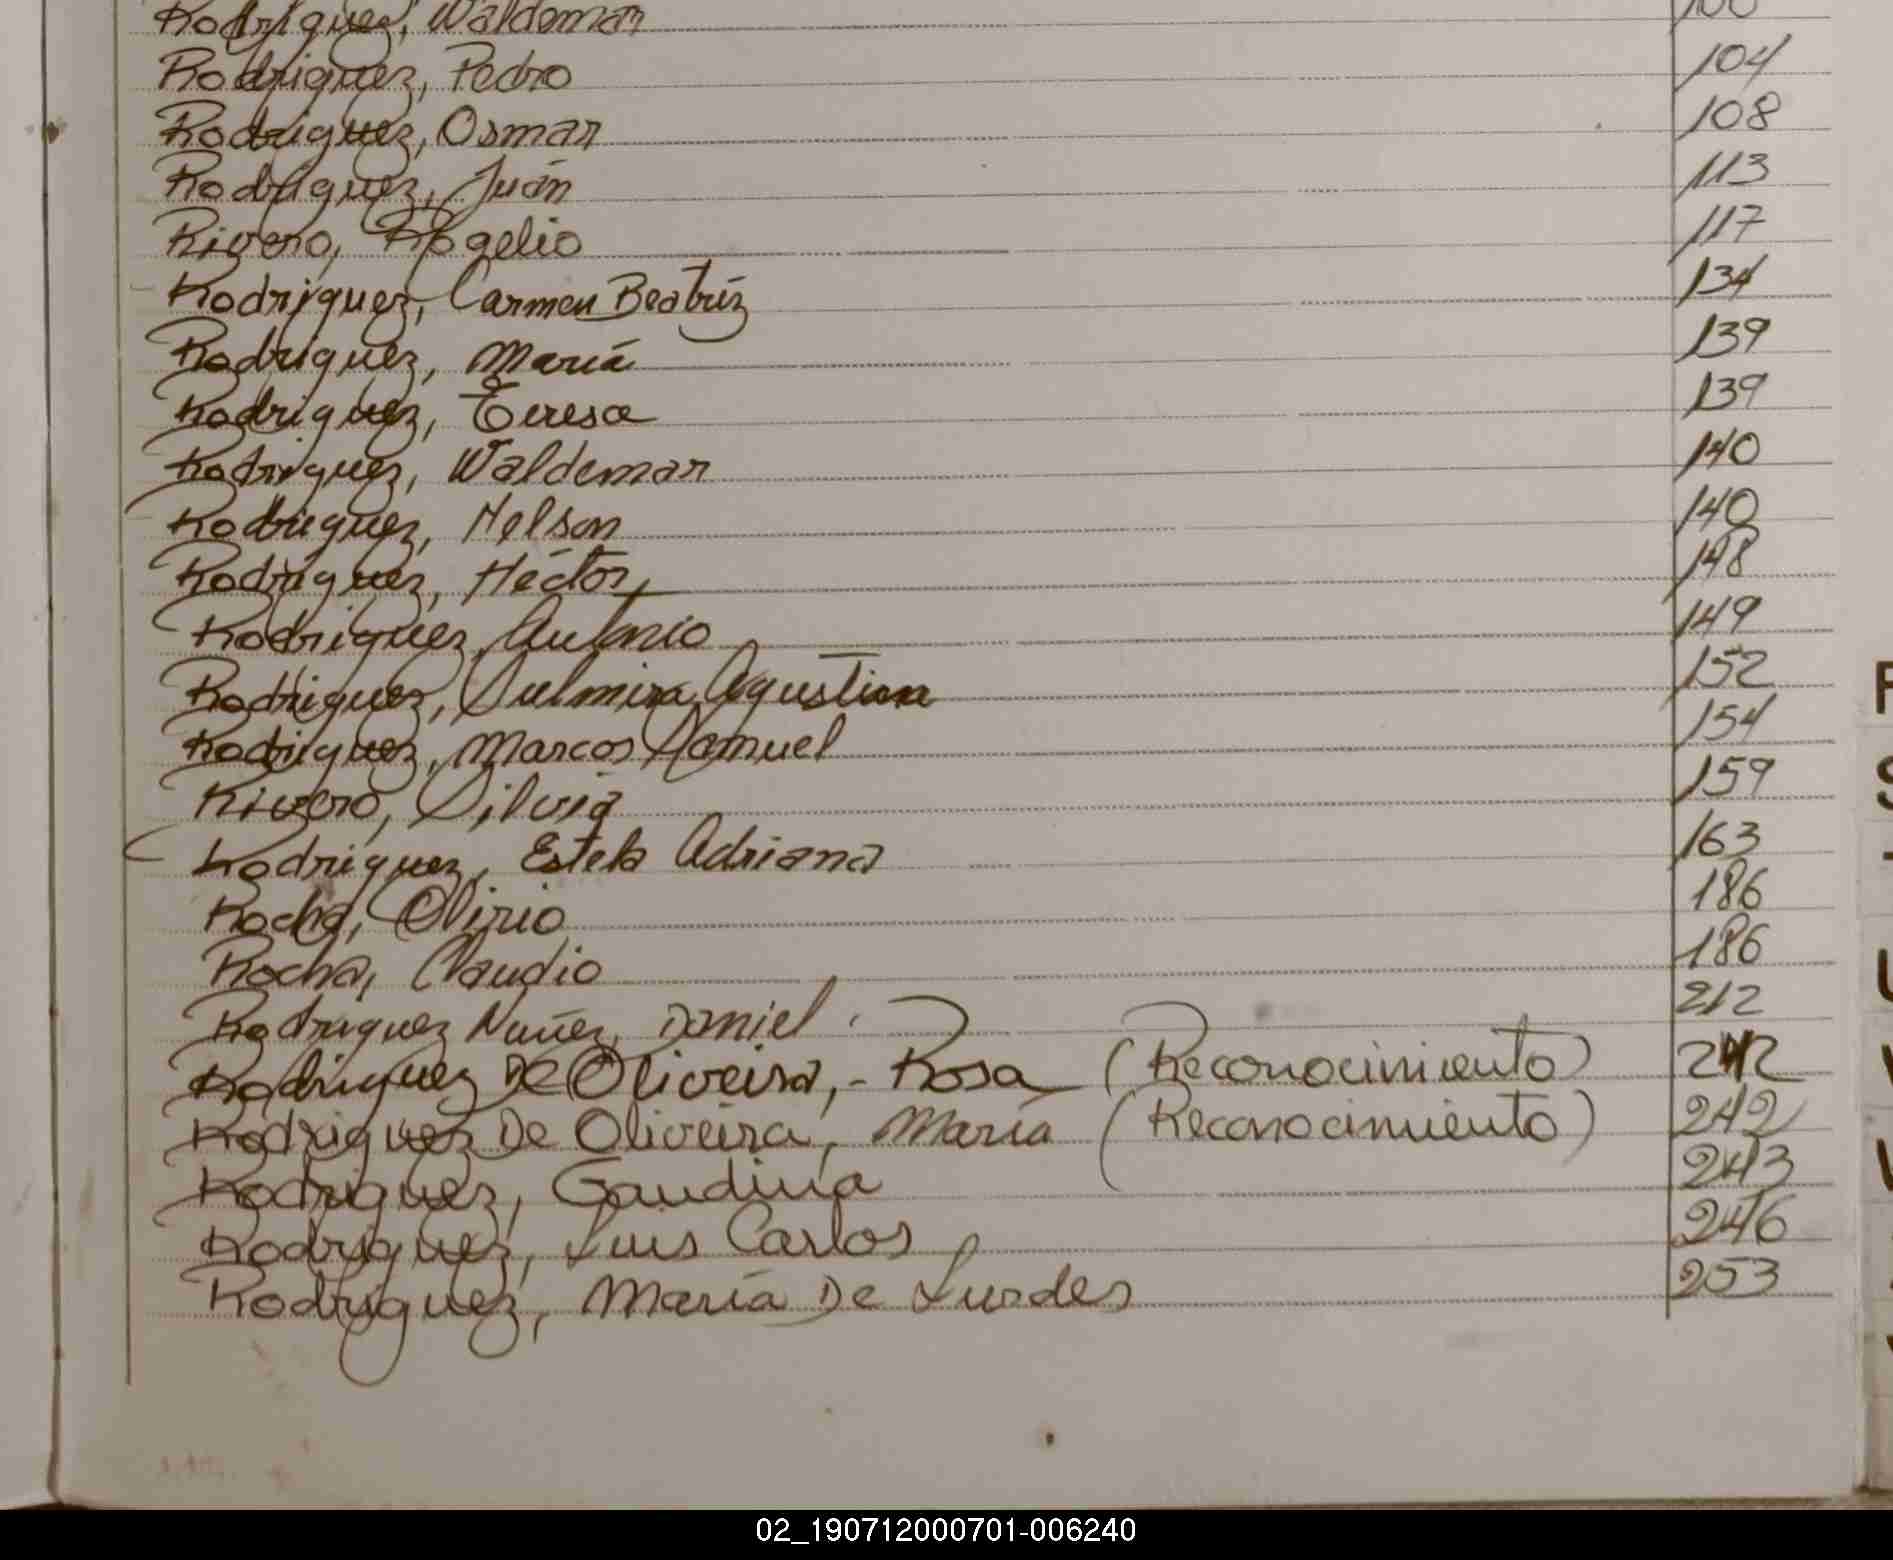 Rodriguez, Waldemar 100
Rodriguez, Pedro 104
Rodriguez, Osmar 108
Rodriguez, Juán 113
Rivero, Rogelio 117
Rodriguez, Carmen Beatríz 134
Rodriguez, María 139
Rodriguez, Teresa 139
Rodriguez, Waldemar 140
Rodriguez, Nelson 140
Rodriguez, Héctor 148
Rodriguez, Antonio 149
Rodriguez, Sulmira Agustina 152
Rodriguez, Marcos Samuel 154
Rivero, Silvia 159
Rodriguez, Estela Adriana 163
Rocha, Olirio 186
Rocha, Claudio 186
Rodriguez Nuñez, Daniel 212
Rodriguez De Oliveira, - Rosa (Reconocimiento) 242
Rodriguez De Oliveira, María (Reconocimiento) 242
Rodriguez, Gaudina 243
Rodriguez, Luis Carlos 246
Rodriguez, María De Lurdes 253
02_190712000701-006240